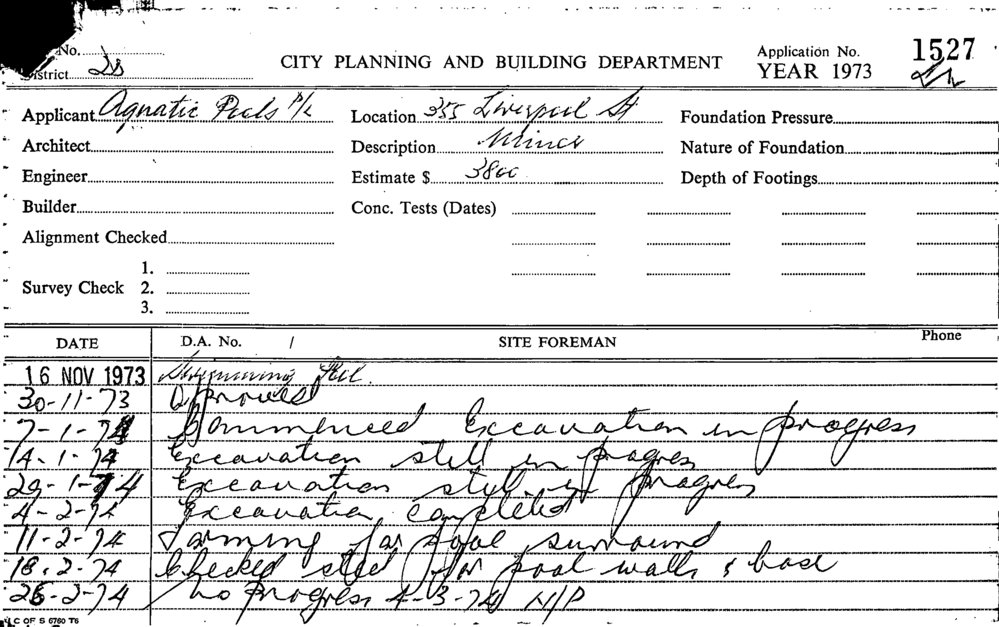 No.
District Ds
CITY PLANNING AND BUILDING DEPARTMENT
Application No. 1527
YEAR 1973
Applicant Aquatic Pools P/L
Location 355 Liverpool St
Foundation Pressure
Architect
Description Minor
Nature of Foundation
Engineer
Estimate $ 3800
Depth of Footings
Builder
Conc. Tests (Dates)
Alignment Checked
Survey Check 1.
2.
3.
DATE D.A. No. / SITE FOREMAN Phone
16 NOV 1973 Swimming Pool.
30-11-73 Approved
7-1-74 Commenced Excavation in progress
14-1-74 Excavation still in progress
29-1-74 Excavation still in progress
4-2-74 Excavation completed
11-2-74 Forming for pool surround
18-2-74 Checked steel for pool walls & base
26-2-74 No Progress 4-3-74 N/P
C OF S 6760 T6